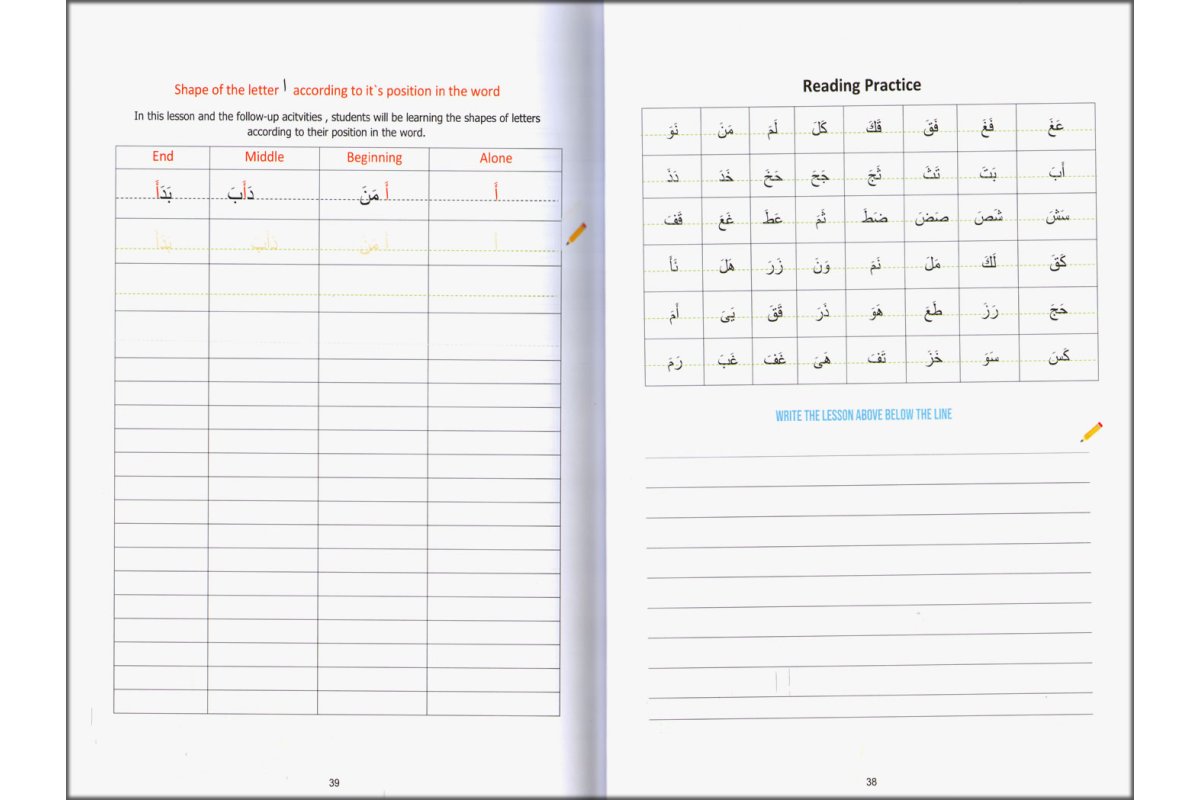 Reading Practice
عَغَ فَغَ فَقَ قَكَ كَلَ لَمَ مَنَ نَوَ
أَبَ بَتَ تَثَ ثَجَ جَحَ حَخَ خَدَ دَذَ
سَشَ شَصَ صَضَ ضَطَ ثَمَ عَطَ غَعَ قَفَ
كَقَ لَكَ مَلَ نَمَ وَنَ زَرَ هَلَ نَأَ
حَجَ رَزَ طَعَ هَوَ ذَرَ قَقَ يَىَ أَمَ
كَسَ سَوَ خَزَ تَفَ هَىَ غَفَ غَبَ رَمَ
WRITE THE LESSON ABOVE BELOW THE LINE
38
Shape of the letter ا according to it`s position in the word
In this lesson and the follow-up acitvities , students will be learning the shapes of letters
according to their position in the word.
End Middle Beginning Alone
أَ أَ مَنَ دَأَبَ بَدَأَ
أ أَ مَنَ دَأَبَ بَدَأَ
39